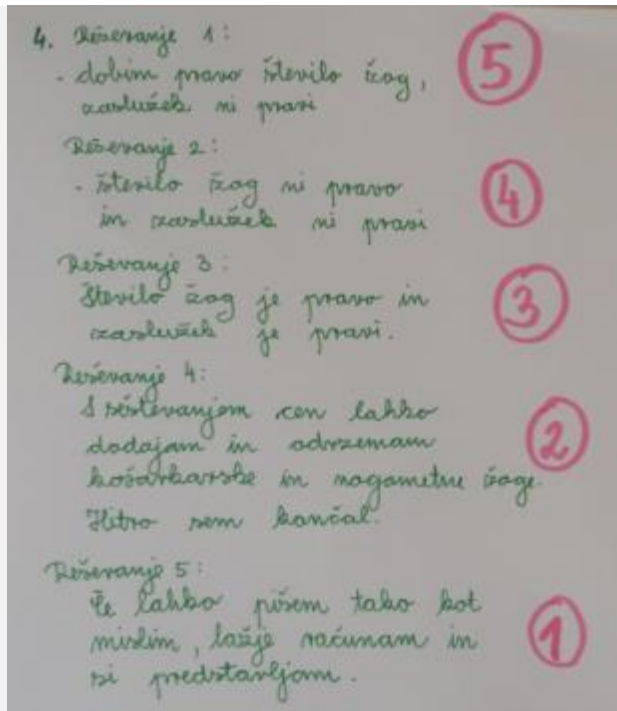 4. Reševanje 1:
5
- dobim pravo število žog,
zaslužek ni pravi
Reševanje 2:
- število žog ni pravo
4
in zaslužek ni pravi
Reševanje 3:
Število žog je pravo in
3
zaslužek je pravi.
Reševanje 4:
S seštevanjem cen lahko
dodajam in odvzemam
2
košarkarske in nogometne žoge.
Hitro sem končal.
Reševanje 5:
Če lahko pišem tako kot
mislim, lažje računam in
1
si predstavljam.